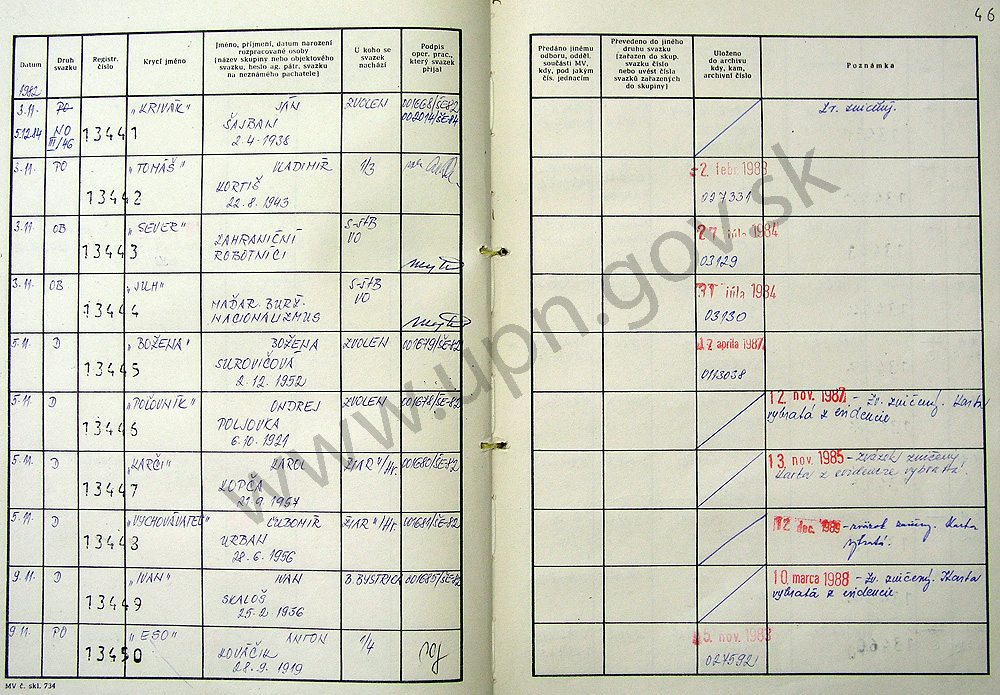 46
Datum
Druh svazku
Registr. číslo
Krycí jméno
Jméno, příjmení, datum narození
rozpracované osoby
(název skupiny nebo objektového
svazku, heslo ag. pátr. svazku
na neznámého pachatele)
U koho se
svazek
nachází
Podpis
oper. prac.,
který svazek
přijal
Předáno jinému
odboru, odděl.
součásti MV,
kdy, pod jakým
čís. jednacím
Převedeno do jiného
druhu svazku
(zařazen do skup.
svazku číslo
nebo uvést čísla
svazků zařazených
do skupiny)
Uloženo
do archivu
kdy, kam,
archivní číslo
Poznámka
1982
3.11. PO "KRIVÁK" JÁN ZVOLEN 001668/ŠE-82
5.12.84 NO 13441 ŠAJBAN 002014/ŠE-84 Zv. zničený.
III/46 2.4.1938
3.11. PO "TOMÁŠ" VLADIMÍR 1/3 2. febr. 1983
13442 KORTIŠ 027331
22.8.1943
3.11. OB "SEVER" S-ŠtB 27. júla 1984
13443 ZAHRANIČNÍ VO 03129
ROBOTNÍCI
3.11. OB "JUH" S-ŠtB 31. júla 1984
13444 MAĎAR. BURŽ. VO 03130
NACIONALIZMUS
5.11. D "BOŽENA" BOŽENA ZVOLEN 001679/ŠE-82 12 apríla 1987
13445 SUROVIČOVÁ 0113038
2.12.1952
5.11. D "POĽOVNÍK" ONDREJ ZVOLEN 001678/ŠE-82 12. nov. 1987 - Zv. zničený. Karta
13446 POLJOVKA vybratá z evidencie
6.10.1921
5.11. D "KARČI" KAROL ŽIAR n/Hr. 001680/ŠE-82 13. nov. 1985 - Zväzok zničený
13447 KOPČA Karta z evidencie vybratá.
21.9.1957
5.11. D "VYCHOVÁVATEĽ" ĽUBOMÍR ŽIAR n/Hr. 001681/ŠE-82 12. dec. 1989 - zväzok zničený. Karta
13448 URBAN vybratá.
28.6.1956
9.11. D "IVAN" IVAN B. BYSTRICA 001685/ŠE-82 10 marca 1988 - Zv. zničený. Karta
13449 SKALOŠ vybratá z evidencie.
25.2.1936
9.11. PO "ESO" ANTON 1/4 5. nov. 1983
13450 KOVÁČIK 027592
28.9.1919
MV č. skl. 734
www.upn.gov.sk